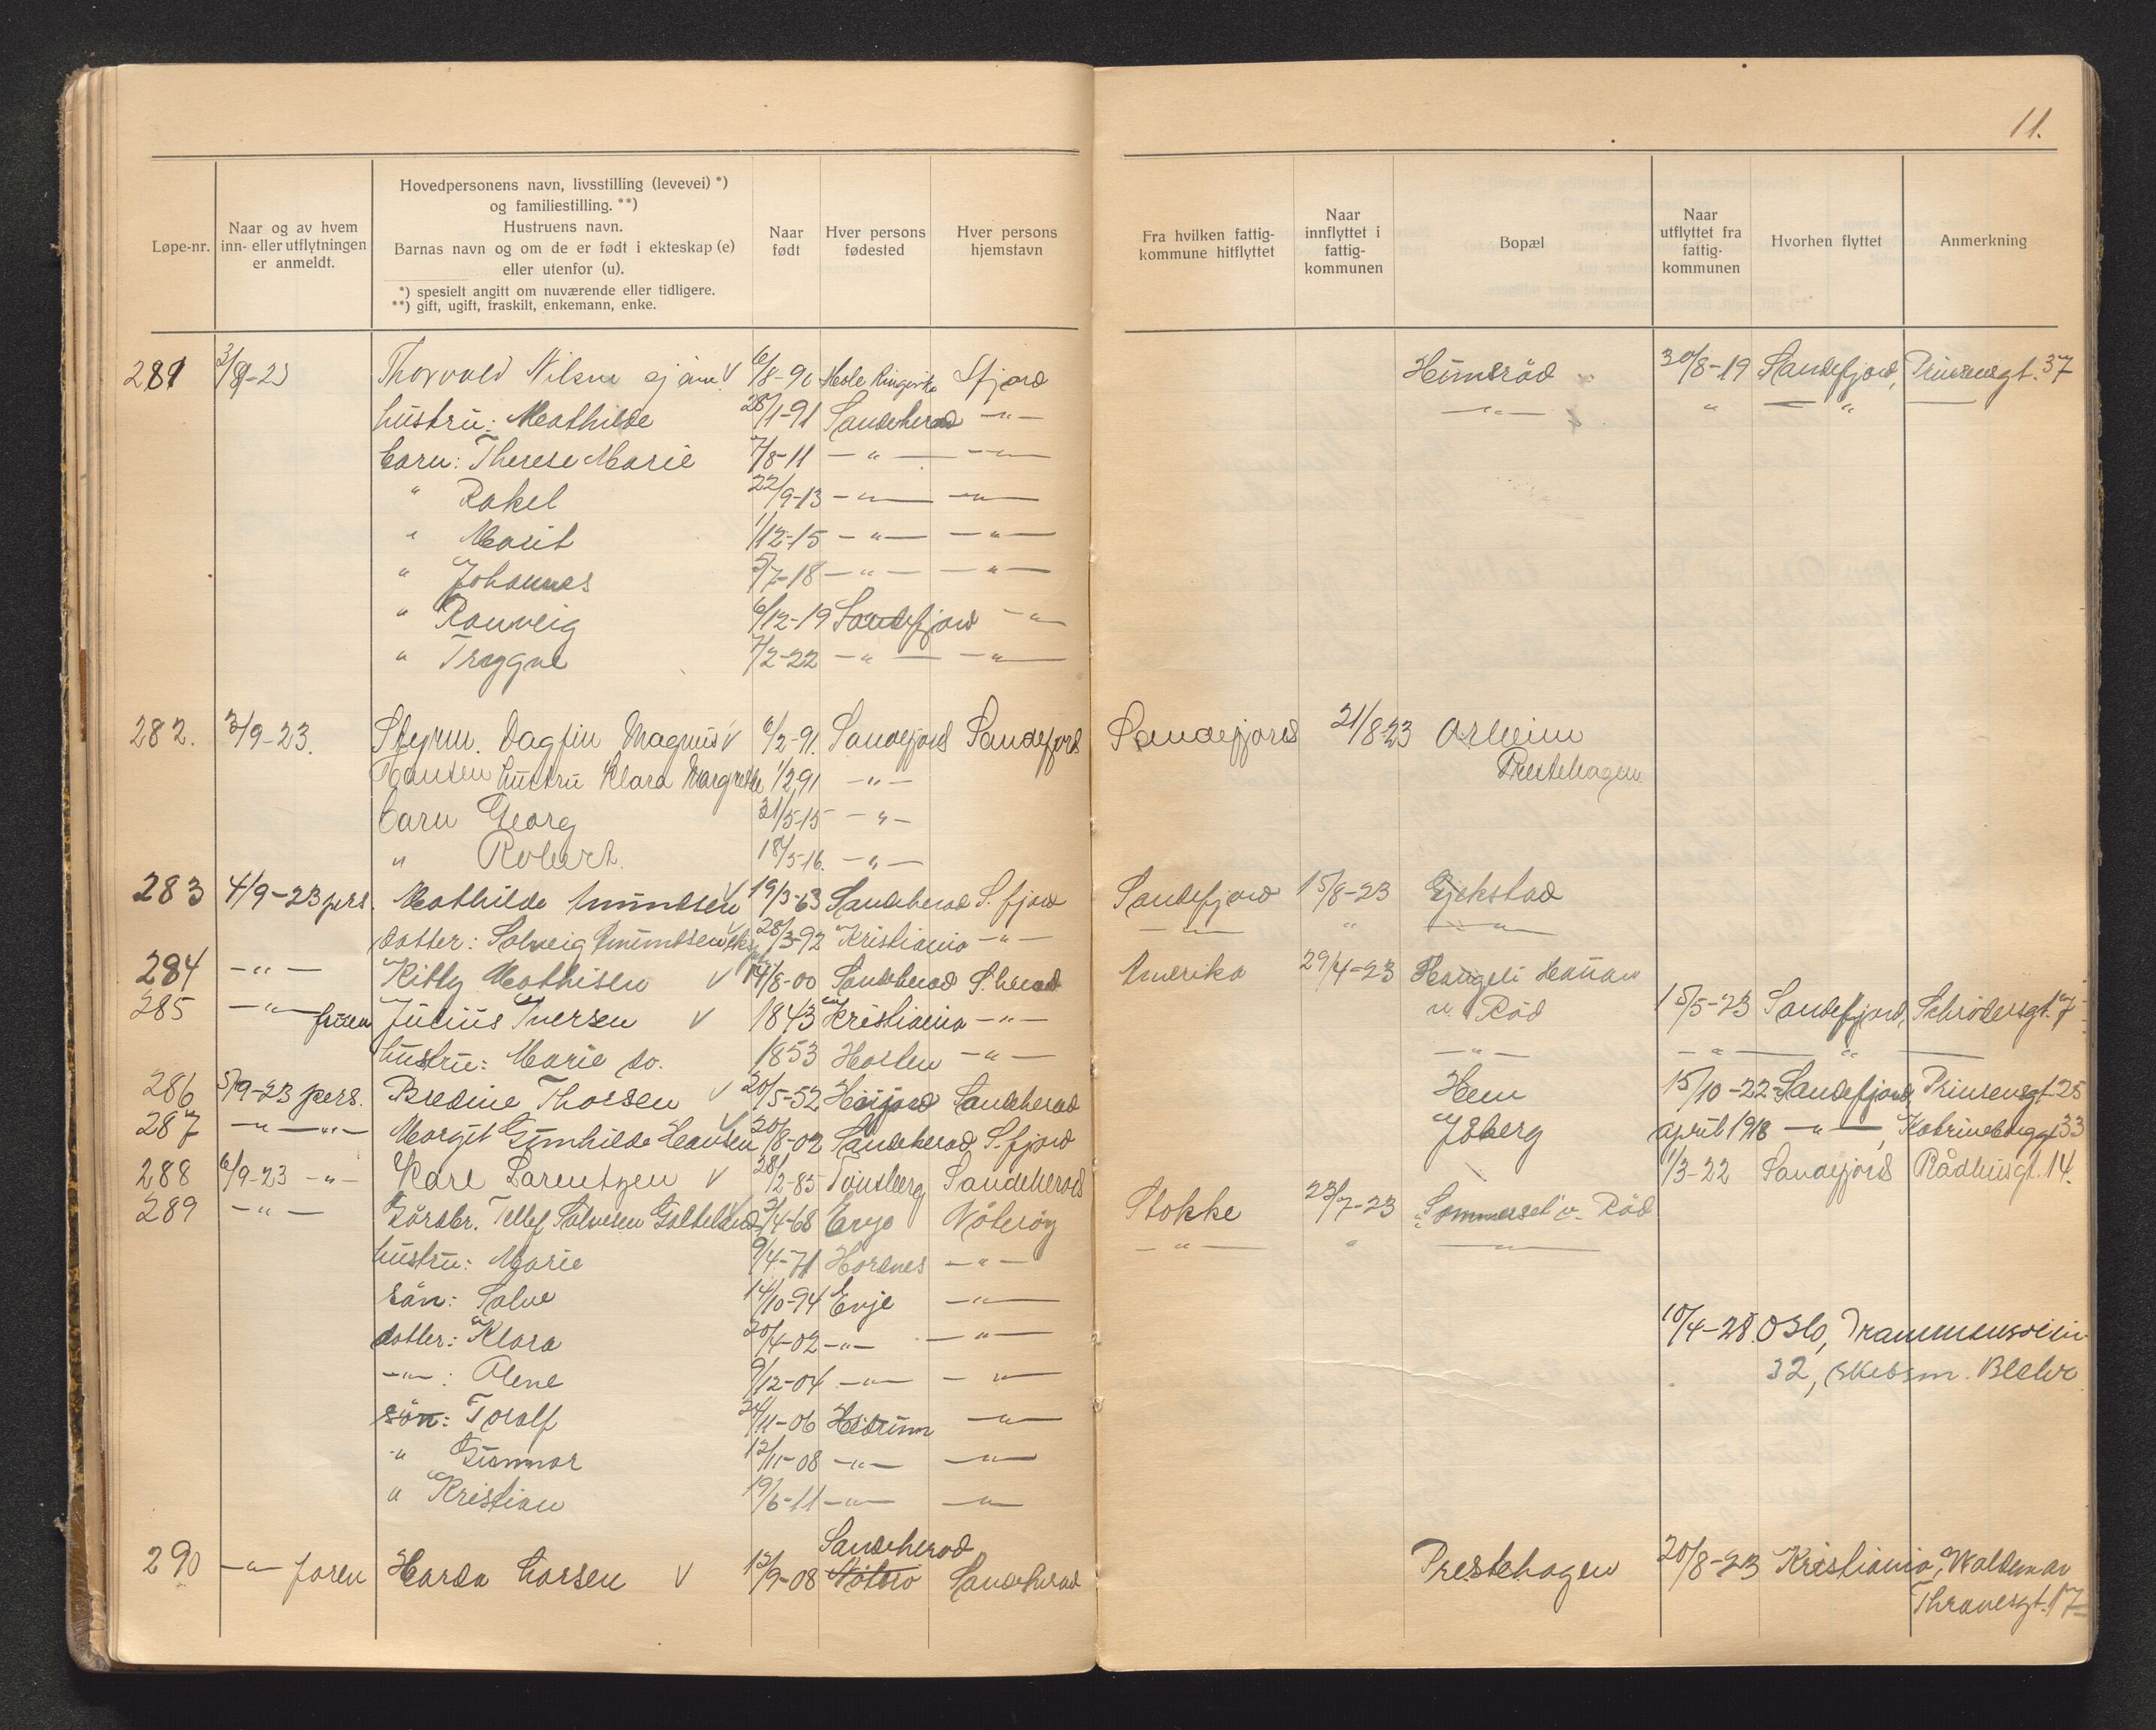 11.
Løpe-nr.
Naar og av hvem
inn- eller utflytningen
er anmeldt.
Hovedpersonens navn, livsstilling (levevei) *)
og familiestilling. **)
Hustruens navn.
Barnas navn og om de er født i ekteskap (e)
eller utenfor (u).
*) spesielt angitt om nuværende eller tidligere.
**) gift, ugift, fraskilt, enkemann, enke.
Naar
født
Hver persons
fødested
Hver persons
hjemstavn
Fra hvilken fattig-
kommune hitflyttet
Naar
innflyttet i
fattig-
kommunen
Bopæl
Naar
utflyttet fra
fattig-
kommunen
Hvorhen flyttet
Anmerkning
281 3/9-23 Thorvald Nilsen sjøm. V 6/8-90 Hole Ringerike Sfjord Himsröd 30/8-19 Sandefjord, Prinsensgt. 37
hustru: Mathilde 28/1-91 Sandeherad -"- -"- " -"-
barn: Therese Marie 7/8-11 -"- -"-
" Rakel 22/9-13 -"- -"-
" Marit 1/12-15 -"- -"-
" Johannes 5/7-18 -"- -"-
" Rannveig 6/12-19 Sandefjord -"-
" Tryggve 7/2-22 -"- -"-
282. 3/9-23. Styrm. Dagfin Magnus V 6/2-91. Sandefjord Sandefjord Sandefjord 21/8-23 Aslheim
Hansen hustru Klara Margrethe 1/2 91 -"- Prestehagen
barn Georg 31/5-15 -"-
" Robert. 18/5-16. -"-
283 4/9-23 pers. Mathilde Amundsen V 19/3-63 Sandeherad S. fjord Sandefjord 15/8-23 Gjekstad
datter: Solveig Amundsen 28/3-92 Kristiania -"- -"- " -"-
284 -"- Kitty Mathisen V 14/8-00 Sandeherad S. herad Amerika 29/4-23 Haugen
285 -"- fruen Julius Iversen V 1843 Kristiania -"- v. Röd 15/5-23 Sandefjord, Schrödersgt. 7
hustru: Marie do. 1853 Horten -"- -"- -"- "
286 5/9-23 pers. Bredine Thorsen V 20/5-52 Höijord Sandeherad Hem 15/10-22 Sandefjord, Prinsensgt 25
287 -"- -"- Margit Gunhilde Hansen V 20/8-02 Sandeherad S. fjord Jöberg april 1918 -"-, Katrineborggt 33
288 6/9-23 -"- Karl Larentzen V 28/2-85 Tönsberg Sandeherad 1/3-22 Sandefjord Rådhusgt. 14.
289 -"- Gårdbr. Tellef Salvesen 3/4-68 Evje Nöteröy Stokke 23/7-23 "Sommerset" v. Röd
hustru: Marie 9/4-71 Hordnes -"- -"- " -"-
sön: Salve 14/10-94 Evje -"-
datter: Klara 20/4-02 -"- -"- 10/4-28. Oslo, Drammensvein
-"-: Olene 9/12-04 -"- -"- 32, Skibsm. Blehr
sön: Toralf 24/11-06 Hedrum -"-
" Gunnar 12/11-08 -"- -"-
" Kristian 19/6-11 -"- -"-
Sandeherad
290 -"- faren Harda Larsen V 12/9-08 Nöterö Sandeherad Prestehagen 20/8-23 Kristiania, Waldemar
Thranesgt. 17